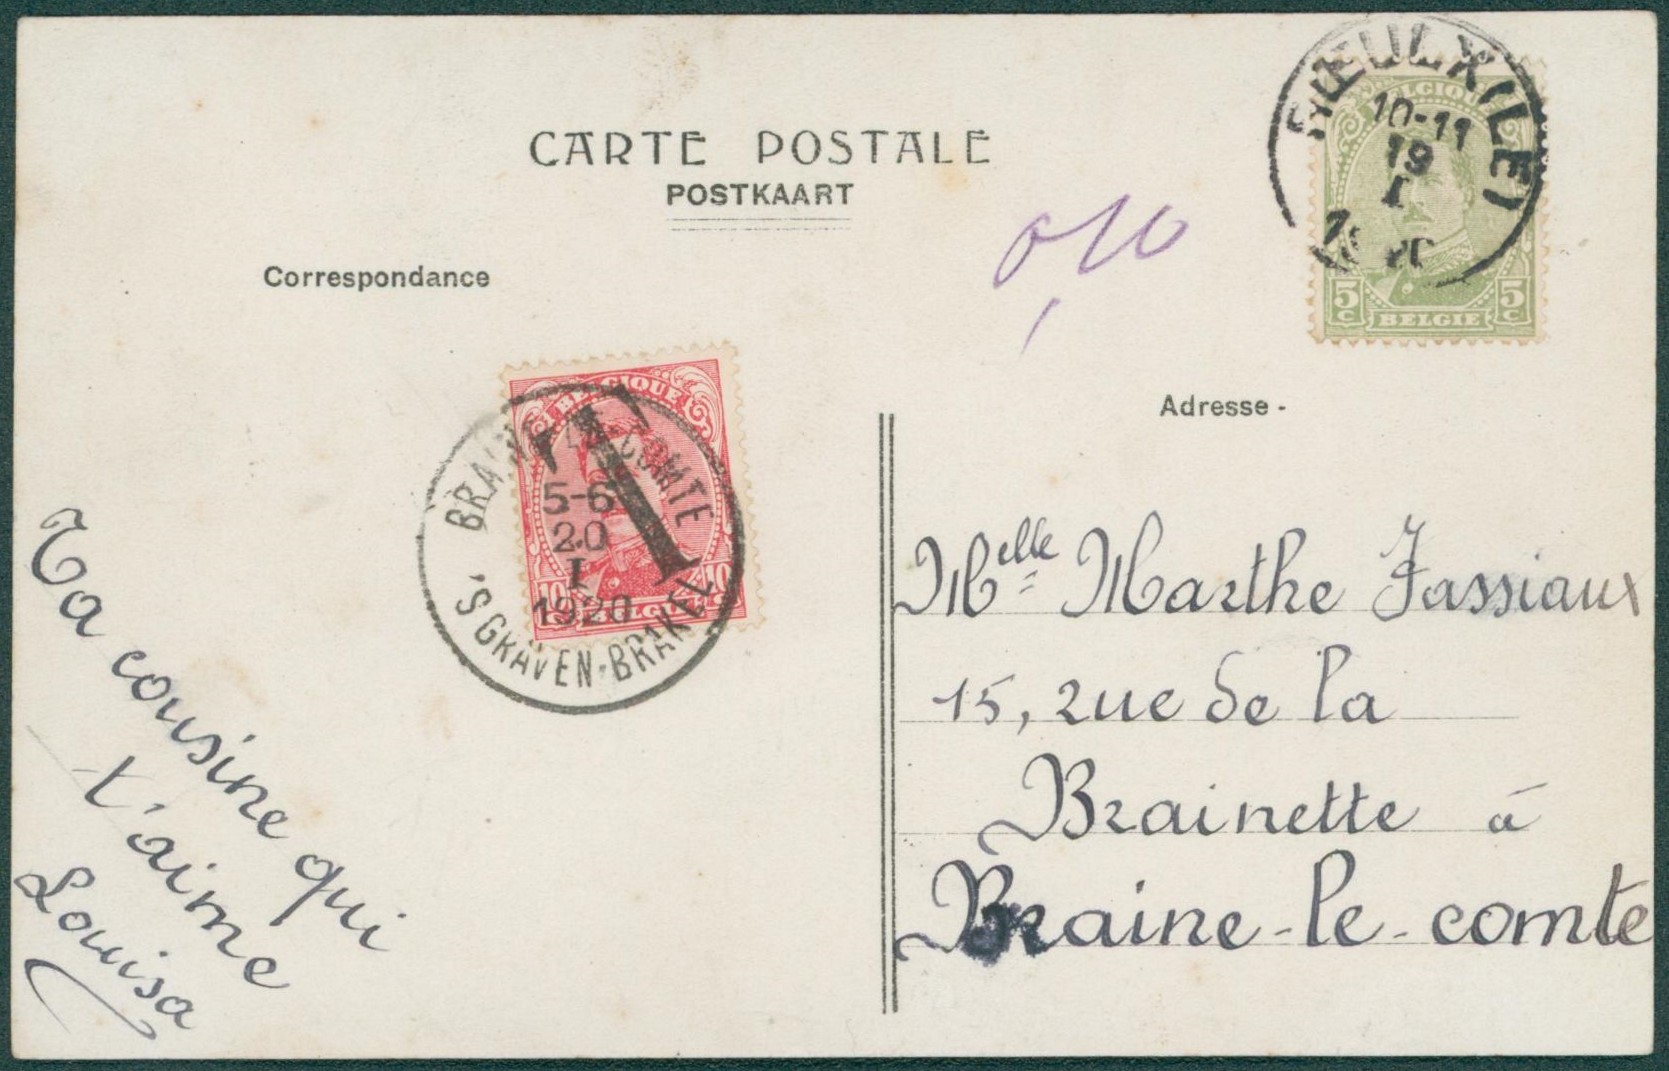 CARTE POSTALE
POSTKAART
Correspondance
Adresse -
RŒULX (LE)
10-11
19
I
BELGIQUE
5 C 5 C
BELGIE
0,10
BELGIQUE
T
BRAINE-LE-COMTE
5-6
20
I
1920
'S GRAVEN-BRAKEL
10 10
BELGIE
Ta cousine qui
t'aime
Louisa
Melle Marthe Fassiaux
15, rue de la
Brainette à
Braine-le-comte